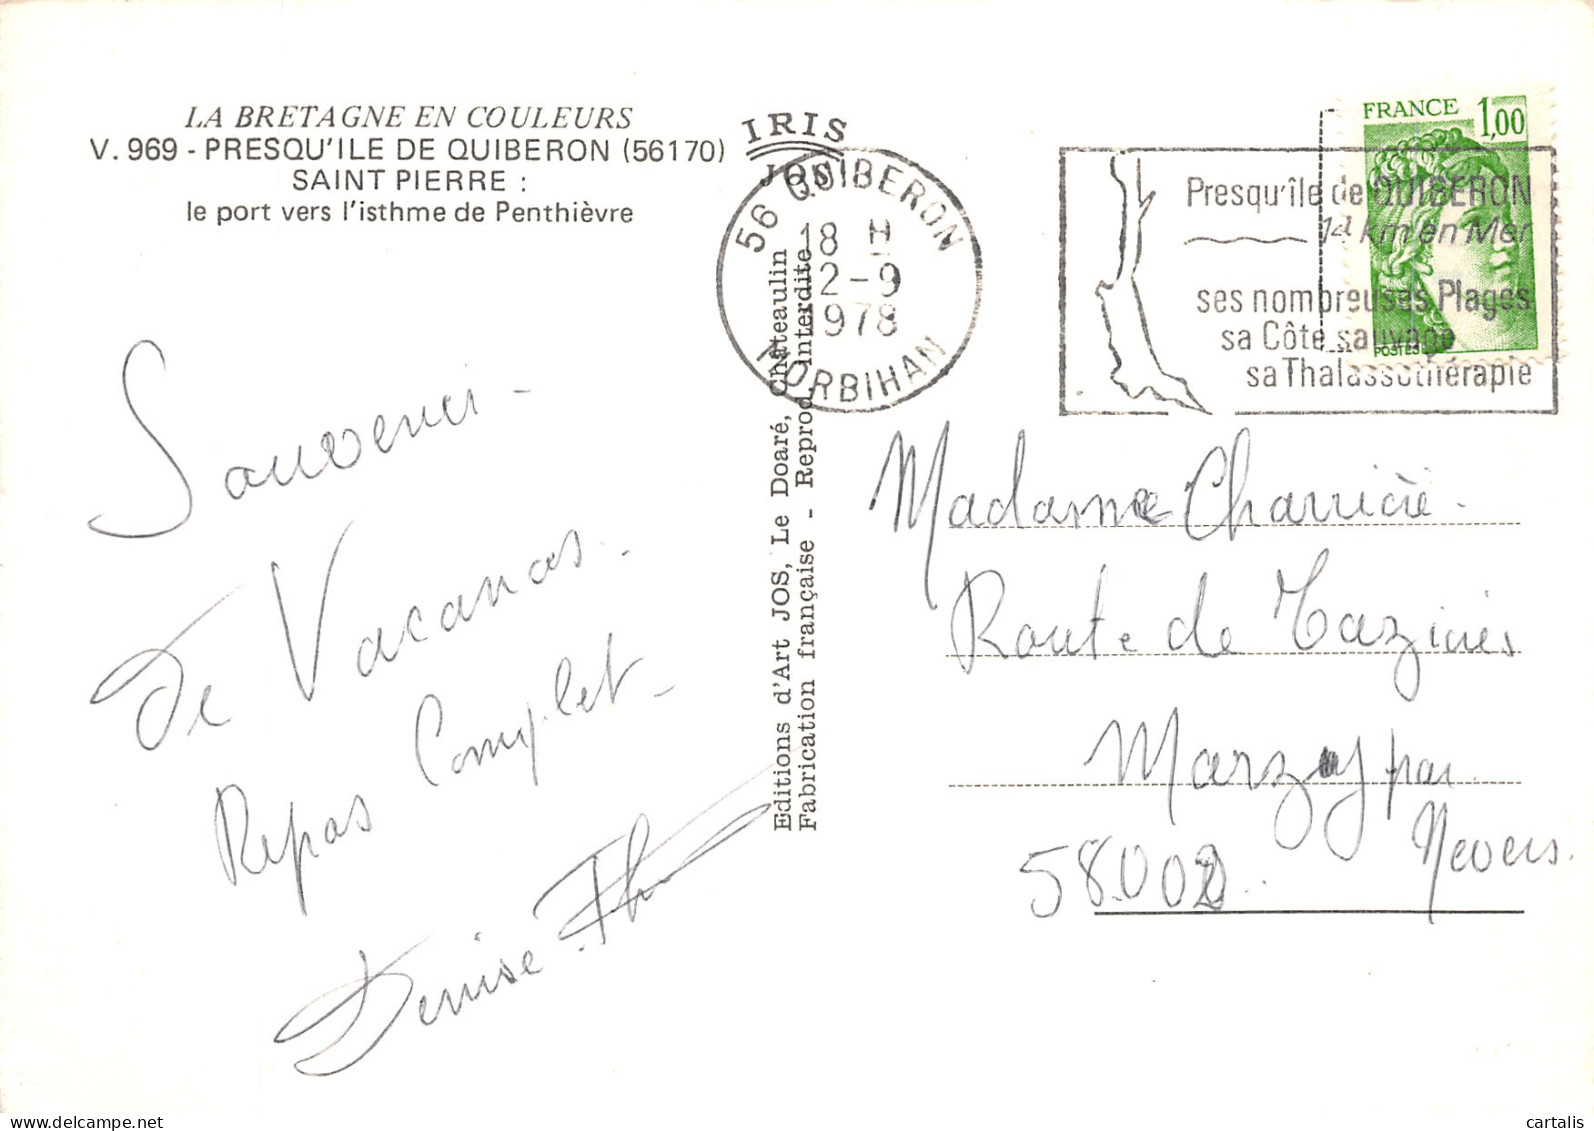 LA BRETAGNE EN COULEURS
V. 969 - PRESQU'ILE DE QUIBERON (56170)
SAINT PIERRE :
le port vers l'isthme de Penthièvre
IRIS
JOS
Editions d'Art JOS, Le Doaré, Châteaulin
Fabrication française - Reprod. interdite
56 QUIBERON
18 H
12-9
1978
MORBIHAN
Presqu'île de QUIBERON
14 km en Mer
ses nombreuses Plages
sa Côte sauvage
sa Thalassothérapie
FRANCE 1,00
POSTES
Souvenir -
de Vacances.
Repos Complet -
Denise
Madame
Route de
Marzy par
Nevers.
58.000
cartalis